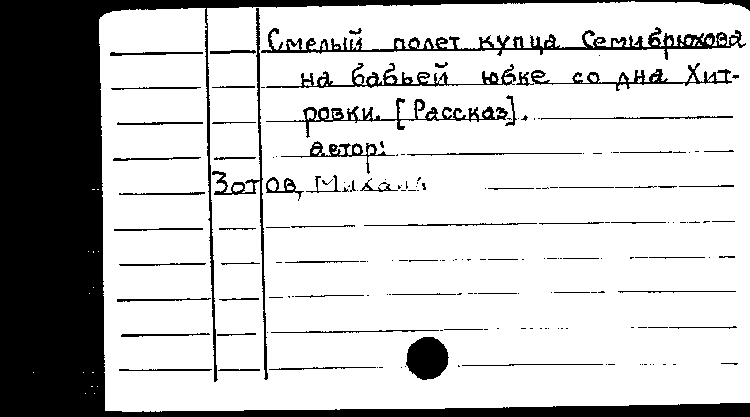 Смелый полет купца Семибрюхова
на бабьей юбке со дна Хит-
ровки. [Рассказ].
автор:
Зотов, Михаил